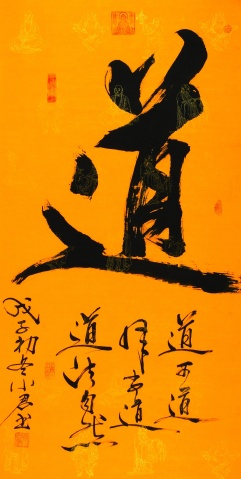 道
道可道
非常道
道法自然
戊子初冬小君书